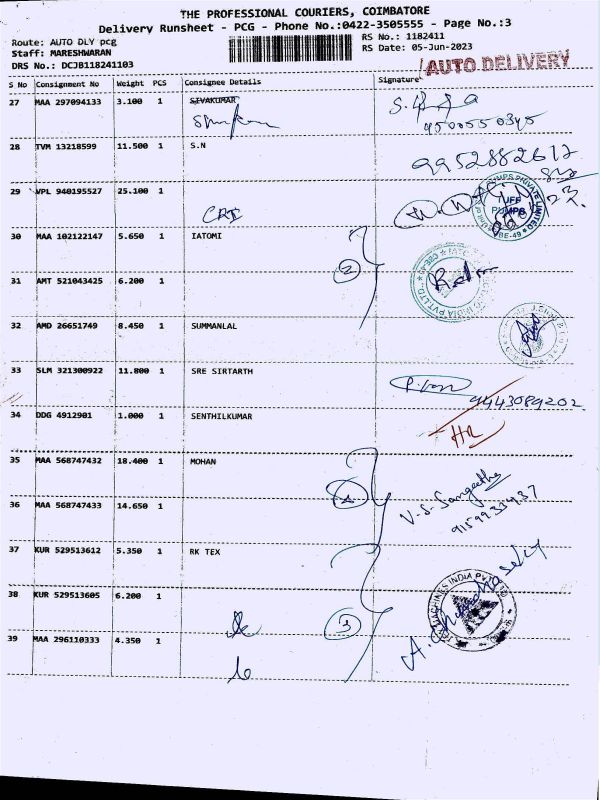 THE PROFESSIONAL COURIERS, COIMBATORE
Delivery Runsheet - PCG - Phone No.:0422-3505555 - Page No.:3
Route: AUTO DLY pcg
Staff: MARESHWARAN
DRS No.: DCJB118241103
RS No.: 1182411
RS Date: 05-Jun-2023
AUTO DELIVERY
S No Consignment No Weight PCS Consignee Details Signature
27 MAA 297094133 3.100 1 SIVAKUMAR
9500550345
28 TVM 13218599 11.500 1 S.N
9952882612
29 VPL 940195527 25.100 1
CRI
PUMPS PRIVATE LIMITED
PUMPS
30 MAA 102122147 5.650 1 IATOMI
2
31 AMT 521043425 6.200 1
INDIA PVT LTD
32 AMD 26651749 8.450 1 SUMMANLAL
33 SLM 321300922 11.800 1 SRE SIRTARTH
9443089202
34 DDG 4912901 1.000 1 SENTHILKUMAR
35 MAA 568747432 18.400 1 MOHAN
V.S. Sangeetha
36 MAA 568747433 14.650 1
37 KUR 529513612 5.350 1 RK TEX
38 KUR 529513605 6.200 1
3
MACHINES INDIA PVT LTD
39 MAA 296110333 4.350 1